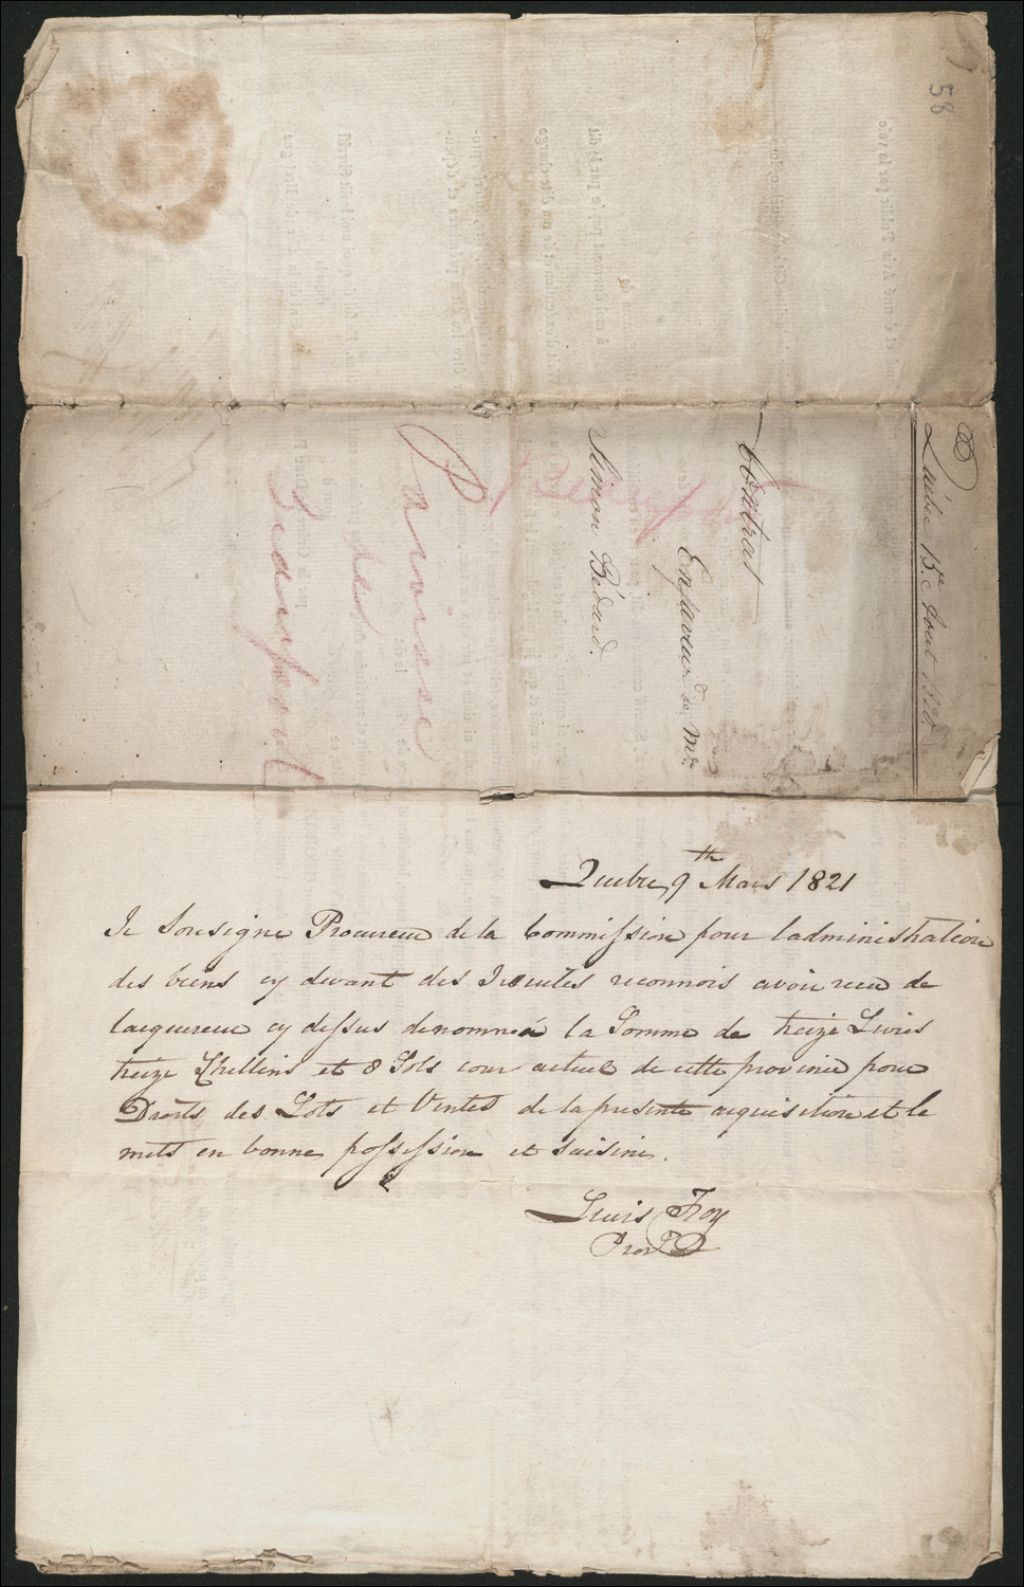 58
Québec 15e. Aout 1820
Contrat
En faveur de Mr.
Simon Bédard.
Beauport
Paroisse
de
Beauport
Quebec 9th Mars 1821
Je Sousigne Procureur de la Commission pour ladministration
des biens cy devant des Jesuites reconnois avoir recu de
lacquereur cy dessus denommé la Somme de treize Livres
treize Chellins et 8 Sols cour actuel de cette province pour
Droits des Lots et Ventes de la presente acquisition et le
mets en bonne possession et saisine.
Louis Foy